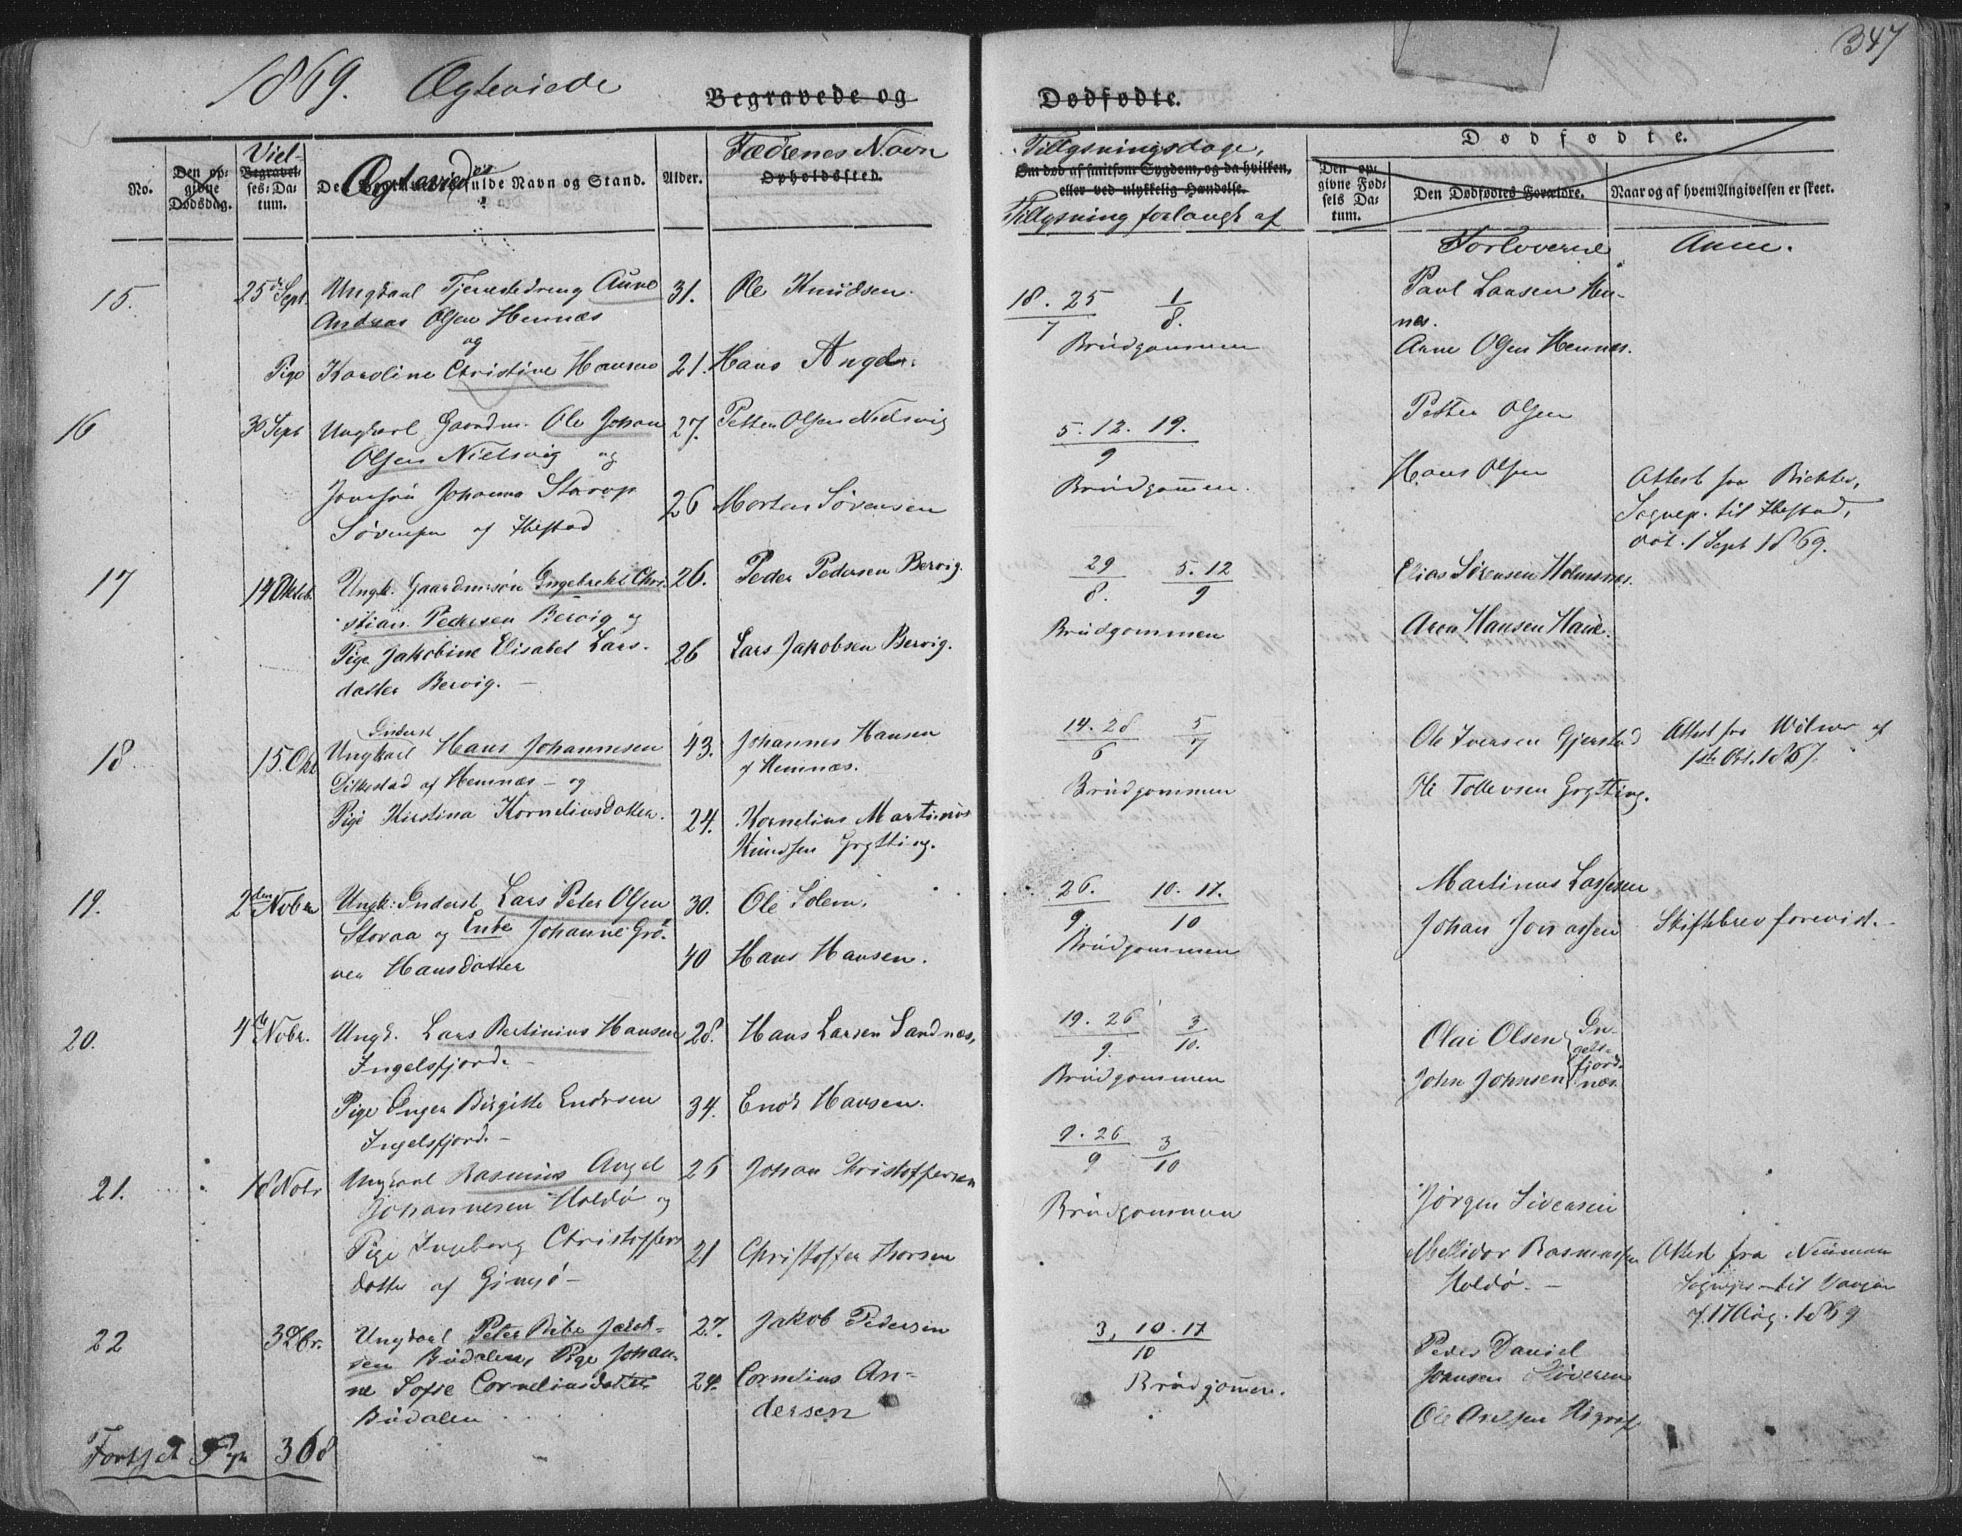 347
1869. Ægteviede
Begravede og
Dødfødte.
No.
Den op-
givne
Dødsdag.
Viel-
Begravel-
ses-Da-
tum.
Ægteviedes
fulde Navn og Stand.
Alder.
Fædrenes Navn
Opholdssted.
Tillysningsdage,
Om død af smitsom Sygdom, og da hvilken,
eller ved ulykkelig Hændelse.
Tillysning forlangt af
Dødfødte.
Den op-
givne Fød-
sels Da-
tum.
Den Dødfødtes Forældre.
Naar og af hvem Angivelsen er skeet.
Forloverne
Anm.
15.
25 Sept
Ungkarl Tjenestedreng Aune
Andreas Olsen Hennæs
og
Pige Karoline Christine Hansen
31.
21.
Ole Knudsen.
Hans Angel.
18. 25 1
7 8.
Brudgommen
Paul Larsen Hen-
næs.
Anne Olsen Hennæs.
16
30 Sept
Ungkarl Gaardm. Ole Johan
Olsen Nielsvig og
Jomfru Johanna
Sørensen af Ibestad
27.
26
Petter Olsen Nielsvig
Morten Sørensen
5. 12. 19.
9
Brudgommen.
Petter Olsen
Hans Olsen
Attest fra Richter,
Sognep. til Ibestad,
dat. 1 Sept 1869.
17
14 Oktob.
Ungk. Gaardmsøn Engebrekt Chri-
stian Pedersen Bervig og
Pige Jakobine Elisabet Lars-
datter Bervig. -
26.
26
Peder Pedersen Bervig.
Lars Jakobsen Bervig.
29 5. 12
8. 9
Brudgommen
Elias Sørensen Holmsnes.
Aron Hansen
18
15. Okt
Inderst
Ungkarl Hans Johannesen
Dilkestad af Hemnæs - og
Pige Kirstina Kornelius Datter.
43.
24.
Johannes Hansen
af Hemnæs.
Kornelius Martinus
Knudsen Grytting.
14. 28 5
6 7
Brudgommen
Ole Iversen Gjerstad
Ole Tollevsen Grytting.
Attest fra af
1867.
19.
2den Nobr
Ungk: Inderst Lars Peter Olsen
Storaa og Enke Johanne Grø-
ver Hansdatter
30.
40
Ole Solem.
Hans Hansen.
26. 10. 17.
9 10
Brudgommen
Martinus Lassesen
Johan Jonassen
Skiftebrev forevist.
20.
4 Nobr.
Ungk. Lars Bertinius Hansen
Ingelsfjord. -
Pige Inger Birgitte Endresen
Ingelsfjord. -
28.
34.
Hans Larsen Sandnæs,
Enok Hansen.
19. 26 3
9. 10.
Brudgommen
Olai Olsen
John Johnsen
In-
gels-
fjord-
næs
21.
18 Nobr
Ungkarl Rasmus Angel
Johannesen Holdø og
Pige Ingeborg Christoffers
datter af Gimsø -
26
21
Johan Christoffersen
Christoffer Thorsen
9. 26 3
9 10
Brudgommen
Jørgen Sivensen
Mellidor Rasmussen
Holdø. -
Attest fra Neuman
Sognepr. til Vaagan
af 17 Aug. 1869
22
3 Dbr.
Ungkarl Peter Jakob-
sen Budalen, Pige Johan-
ne Sofie Corneliusdatter
Budalen
27.
24.
Jakob Pedersen
Cornelius An-
dersen
3, 10. 17
10
Brudgommen.
Peder Daniel
Johnsen
Ole
Fortsat Pag 368